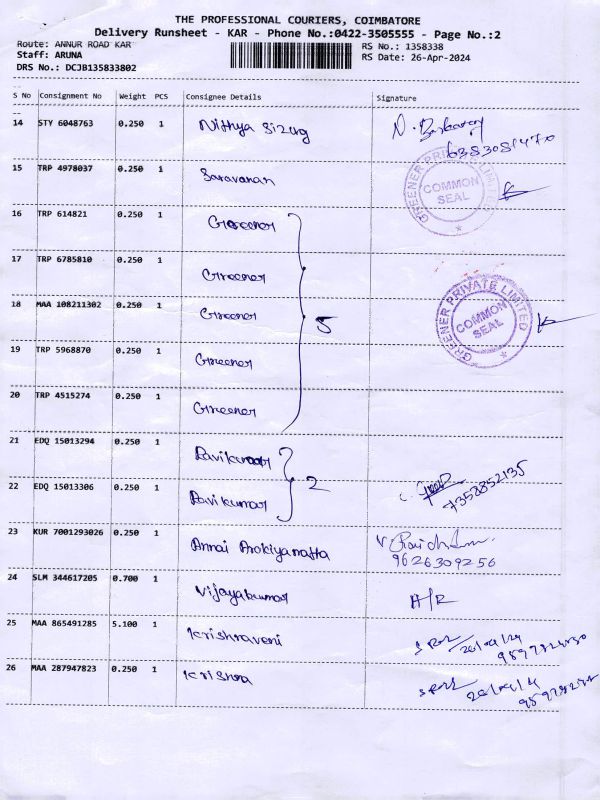 THE PROFESSIONAL COURIERS, COIMBATORE
Delivery Runsheet - KAR - Phone No.:0422-3505555 - Page No.:2
Route: ANNUR ROAD KAR RS No.: 1358338
Staff: ARUNA RS Date: 26-Apr-2024
DRS No.: DCJB135833802
S No Consignment No Weight PCS Consignee Details Signature
14 STY 6048763 0.250 1 Nithya
15 TRP 4978037 0.250 1 Saravanan
GREENER PRIVATE LIMITED
COMMON
SEAL
16 TRP 614821 0.250 1 Greener
17 TRP 6785810 0.250 1 Greener
18 MAA 108211302 0.250 1 Greener 5
GREENER PRIVATE LIMITED
COMMON
SEAL
19 TRP 5968870 0.250 1 Greener
20 TRP 4515274 0.250 1 Greener
21 EDQ 15013294 0.250 1 Ravikumar
22 EDQ 15013306 0.250 1 Ravikumar 2
7358852135
23 KUR 7001293026 0.250 1 Annai Arokiyamatha
9626309256
24 SLM 344617205 0.700 1 Vijayakumar A/R
25 MAA 865491285 5.100 1 Krishraveni
26 MAA 287947823 0.250 1 Krishra